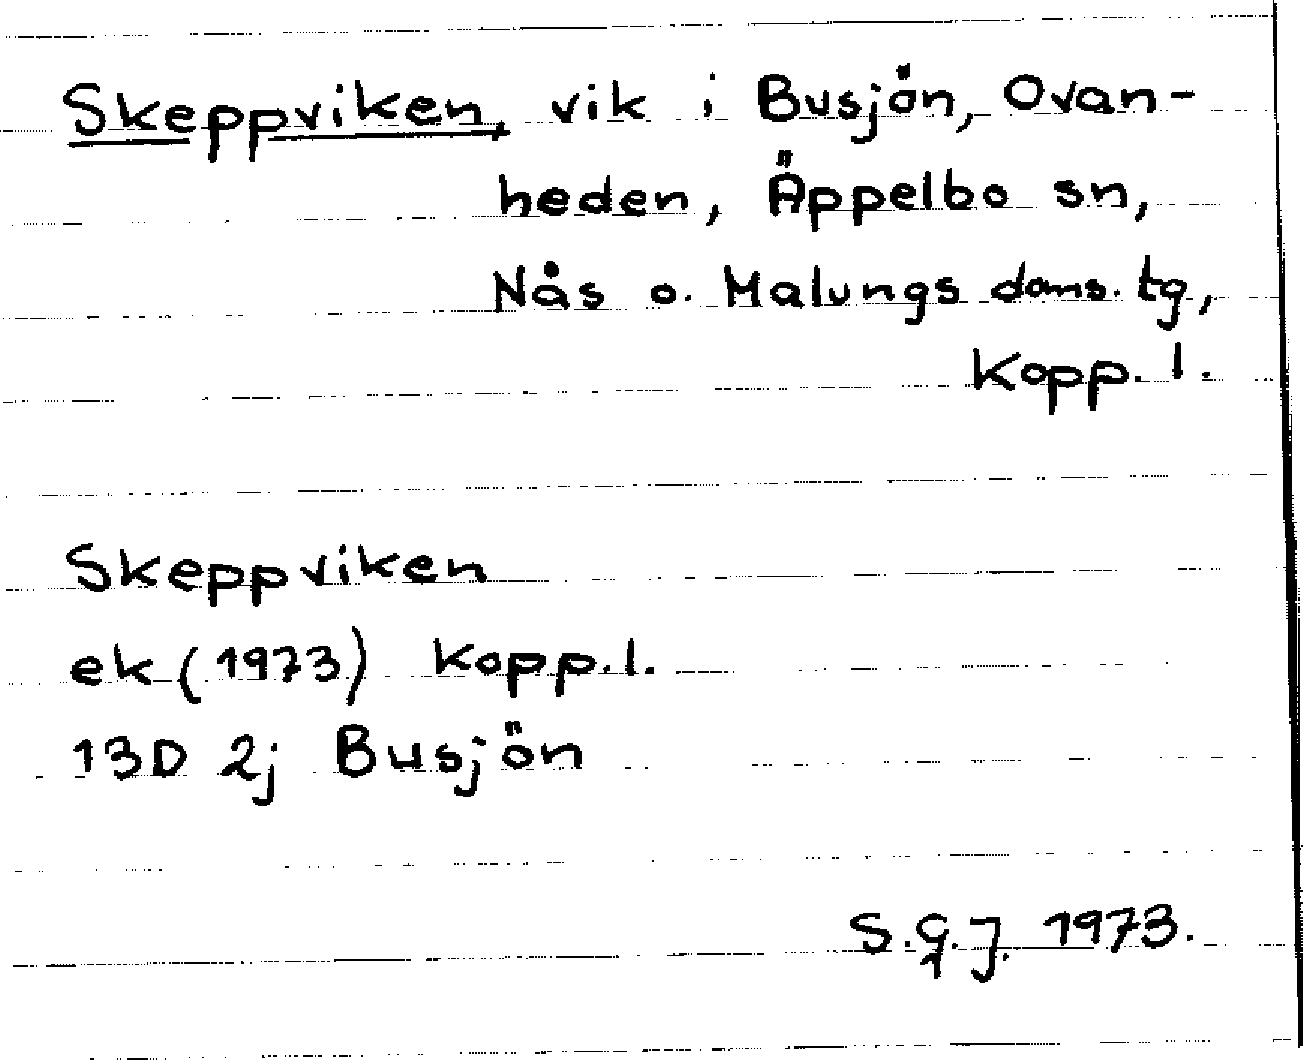 Skeppviken, vik i Busjön, Ovan-
heden, Äppelbo sn,
Nås o. Malungs doms. tg,
Kopp. l.
Skeppviken
ek (1973) Kopp. l.
13D 2j Busjön
S.G.J. 1973.